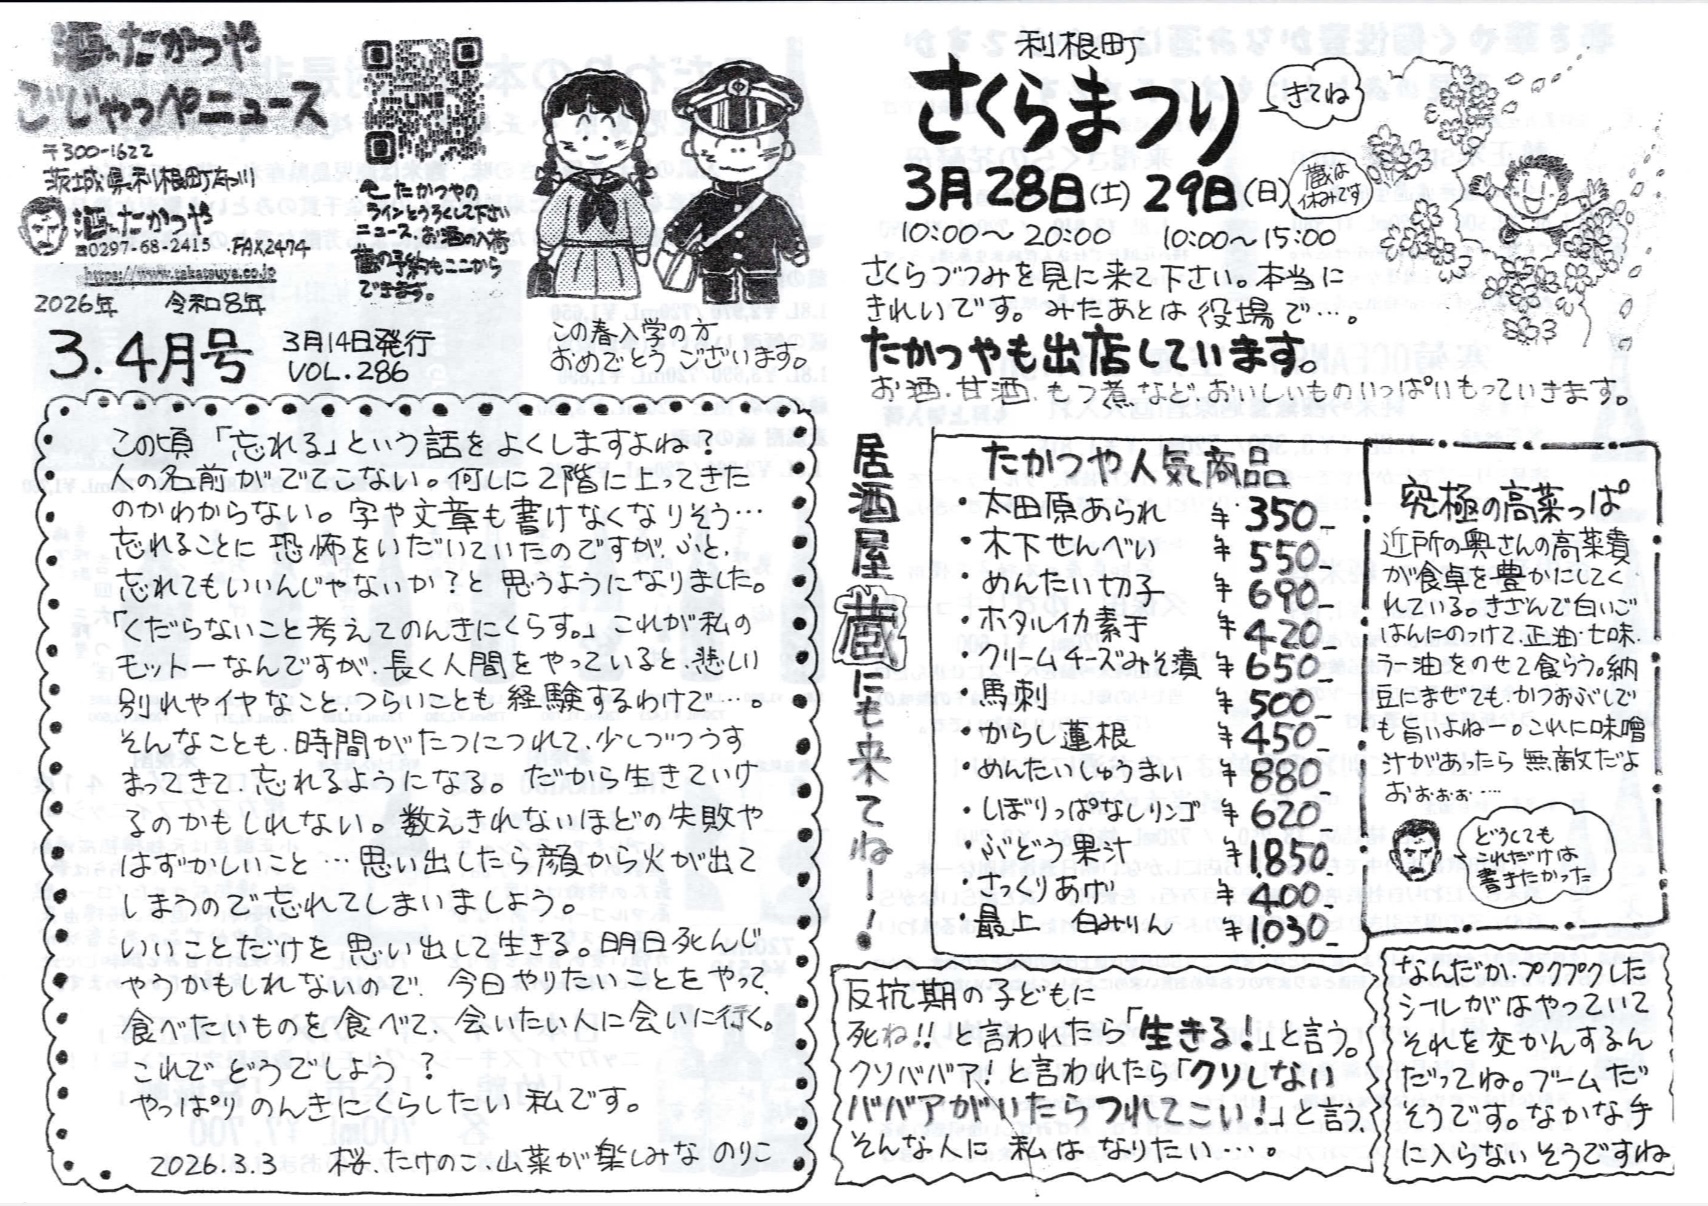 酒のたかつや
ごじゃっぺニュース
〒300-1622
茨城県利根町布川
酒のたかつや
☎0297-68-2415 FAX2474
https://www.takatsuya.co.jp
2026年 令和8年
3.4月号
3月14日発行
VOL.286
LINE
たかつやの
ラインとうろくして下さい
ニュース、お酒の入荷
蔵の予約もここから
できます。
この春入学の方
おめでとうございます。
この頃「忘れる」という話をよくしますよね?
人の名前がでてこない。何しに2階に上ってきた
のかわからない。字や文章も書けなくなりそう…
忘れることに恐怖をいだいていたのですが、ふと、
忘れてもいいんじゃないか?と思うようになりました。
「くだらないこと考えてのんきにくらす。」これが私の
モットーなんですが、長く人間をやっていると、悲しい
別れやイヤなこと、つらいことも経験するわけで…。
そんなことも、時間がたつにつれて、少しづつうす
まってきて、忘れるようになる。だから生きていけ
るのかもしれない。数えきれないほどの失敗や
はずかしいこと…思い出したら顔から火が出て
しまうので忘れてしまいましょう。
いいことだけを思い出して生きる。明日死んじ
ゃうかもしれないので、今日やりたいことをやって、
食べたいものを食べて、会いたい人に会いに行く。
これでどうでしょう?
やっぱりのんきにくらしたい私です。
2026.3.3 桜、たけのこ、山菜が楽しみな のりこ
利根町
さくらまつり
きてね
3月28日(土) 29日(日)
蔵は
休みです
10:00〜20:00 10:00〜15:00
さくらづつみを見に来て下さい。本当に
きれいです。みたあとは役場で…。
たかつやも出店しています。
お酒、甘酒、もつ煮など、おいしいものいっぱいもっていきます。
居酒屋蔵にも来てね ー!
たかつや人気商品
・大田原あられ ¥350-
・木下せんべい ¥550-
・めんたい切子 ¥690-
・ホタルイカ素干 ¥420-
・クリームチーズみそ漬 ¥650-
・馬刺 ¥500-
・からし蓮根 ¥450-
・めんたいしゅうまい ¥880-
・しぼりっぱなしリンゴ ¥620-
・ぶどう果汁 ¥1,850-
・さっくりあげ ¥400-
・最上 白みりん ¥1030-
究極の高菜っぱ
近所の奥さんの高菜漬
が食卓を豊かにしてく
れている。きざんで白いご
はんにのっけて、正油・七味・
ラー油をのせて食らう。納
豆にまぜても、かつおぶしで
も旨いよねー。これに味噌
汁があったら無敵だよ
おぉぉぉ…
どうしても
これだけは
書きたかった
反抗期の子どもに
死ね!!と言われたら「生きる!」と言う。
クソババァ!と言われたら「クソしない
ババアがいたらつれてこい!」と言う。
そんな人に私はなりたい…。
なんだか、プクプクした
シールがはやっていて
それを交かんするん
だってね。ブームだ
そうです。なかなか手
に入らないそうですね